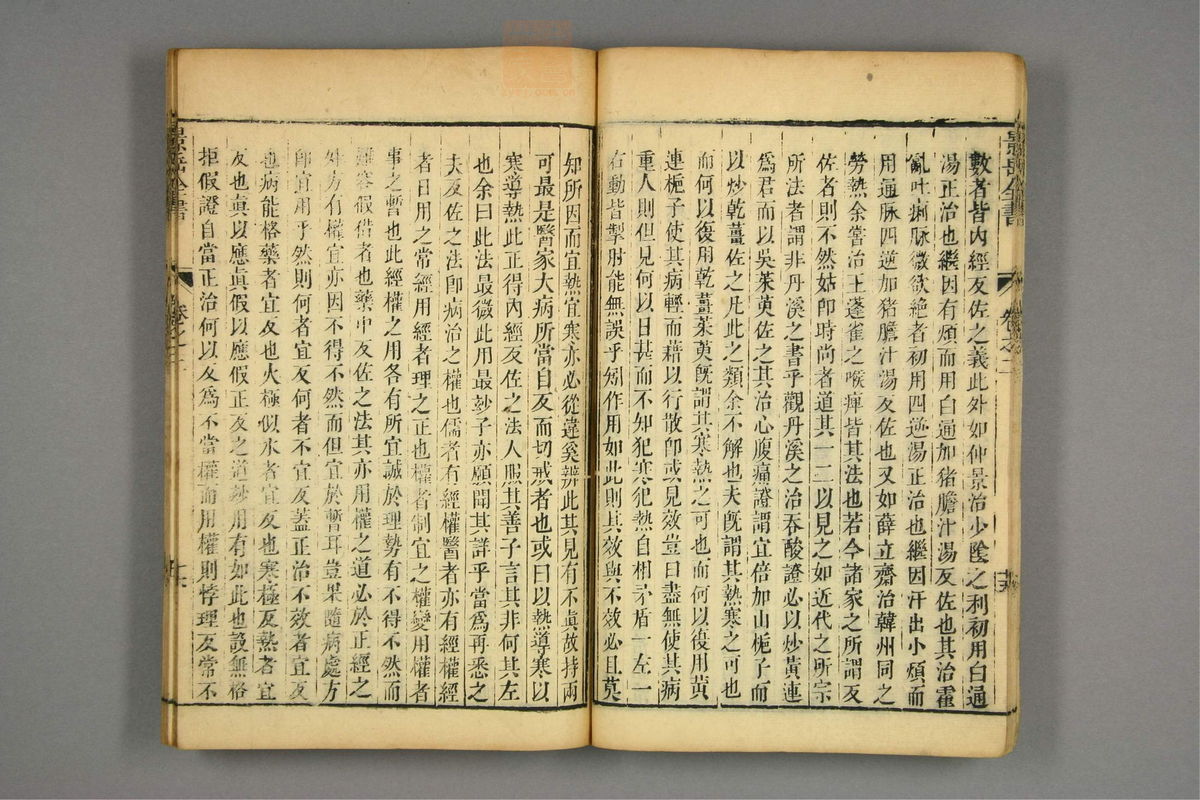 景岳全書
卷之二
數者皆內經反佐之義此外如仲景治少陰之利初用白通
湯正治也繼因有煩而用白通加猪膽汁湯反佐也其治霍
亂吐痢脉微欲絶者初用四逆湯正治也繼因汗出小煩而
用通脉四逆加猪膽汁湯反佐也又如薛立齋治韓州同之
勞熱余嘗治王蓬雀之喉痺皆其法也若今諸家之所謂反
佐者則不然姑卽時尚者道其一二以見之如近代之所宗
所法者謂非丹溪之書乎觀丹溪之治吞酸證必以炒黃連
爲君而以吳茱萸佐之其治心腹痛證謂宜倍加山梔子而
以炒乾薑佐之凡此之類余不解也夫旣謂其熱寒之可也
而何以復用乾薑茱萸旣謂其寒熱之可也而何以復用黃
連梔子使其病輕而藉以行散卽或見效豈曰盡無使其病
重人則但見何以日甚而不知犯寒犯熱自相矛盾一左一
右動皆掣肘能無誤乎矧作用如此則其效與不效必且莫
知所因而宜熱宜寒亦必從違奚辨此其見有不眞故持兩
可最是醫家大病所當自反而切戒者也或曰以熱導寒以
寒導熱此正得內經反佐之法人服其善子言其非何其左
也余曰此法最微此用最玅子亦願聞其詳乎當爲再悉之
夫反佐之法卽病治之權也儒者有經權醫者亦有經權經
者日用之常經用經者理之正也權者制宜之權變用權者
事之暫也此經權之用各有所宜誠於理勢有不得不然而
難容假借者也藥中反佐之法其亦用權之道必於正經之
外方有權宜亦因不得不然而但宜於暫耳豈果隨病處方
卽宜用乎然則何者宜反何者不宜反蓋正治不效者宜反
也病能格藥者宜反也火極似水者宜反也寒極反熱者宜
反也眞以應眞假以應假正反之道玅用有如此也設無格
拒假證自當正治何以反爲不當權而用權則悖理反常不
景岳全書
卷之二